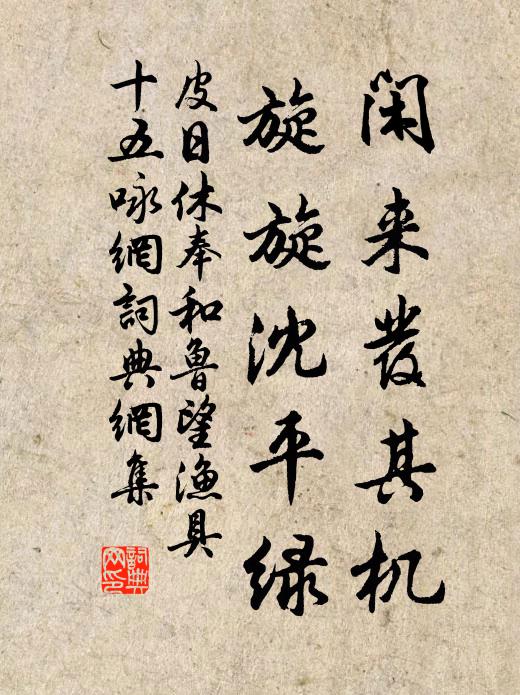 闲来发其机
旋旋沈平绿
皮日休奉和鲁望渔具
十五咏網詞典網集
詞典
网印